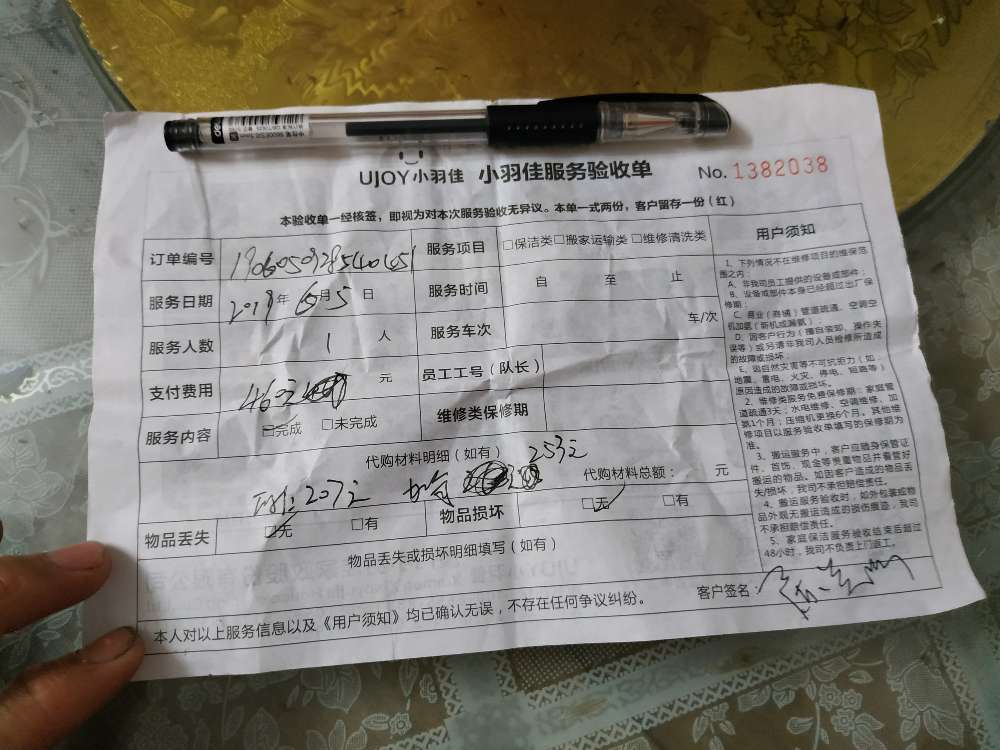 deli
UJOY小羽佳 小羽佳服务验收单 No. 1382038
本验收单一经核签，即视为对本次服务验收无异议。本单一式两份，客户留存一份（红）
订单编号 服务项目 □保洁类□搬家运输类□维修清洗类
服务日期 2019年6月5日 服务时间 自 至 止
服务人数 1 人 服务车次 车/次
支付费用 460元 元 员工工号（队长）
服务内容 □完成 □未完成 维修类保修期
代购材料明细（如有） 253元
207元 代购材料总额： 元
物品丢失 □无 □有 物品损坏 □无 □有
物品丢失或损坏明细填写（如有）
本人对以上服务信息以及《用户须知》均已确认无误，不存在任何争议纠纷。 客户签名：
用户须知
1、下列情况不在维修项目的维保范
围之内：
A、非我司员工提供的设备或部件；
B、设备或部件本身已经超过出厂保
修期；
C、商业（商铺）管道疏通、空调空
机加氨（新机或漏氨）；
D、因客户行为（擅自装卸、操作失
误等）或另请非我司人员检修所造成
的故障或损坏；
E、因自然灾害等不可抗拒力（如
地震、雷电、火灾、停电、短路等）
原因造成的故障或损坏。
2、维修类服务免费保修期：家庭管
道疏通3天；水电维修、空调维修、加
氨1个月；压缩机更换6个月。其他维
修项目以服务验收单填写的保修期为
准。
3、搬运服务中，客户应随身保管证
件、首饰、现金等贵重物品并看管好
搬运的物品。如因客户造成的物品丢
失/损坏，我司不承担赔偿责任。
4、搬运服务验收时，如外包装或物
品外观无搬运造成的损伤痕迹，我司
不承担赔偿责任。
5、家庭保洁服务验收结束后超过
48小时，我司不负责上门返工。